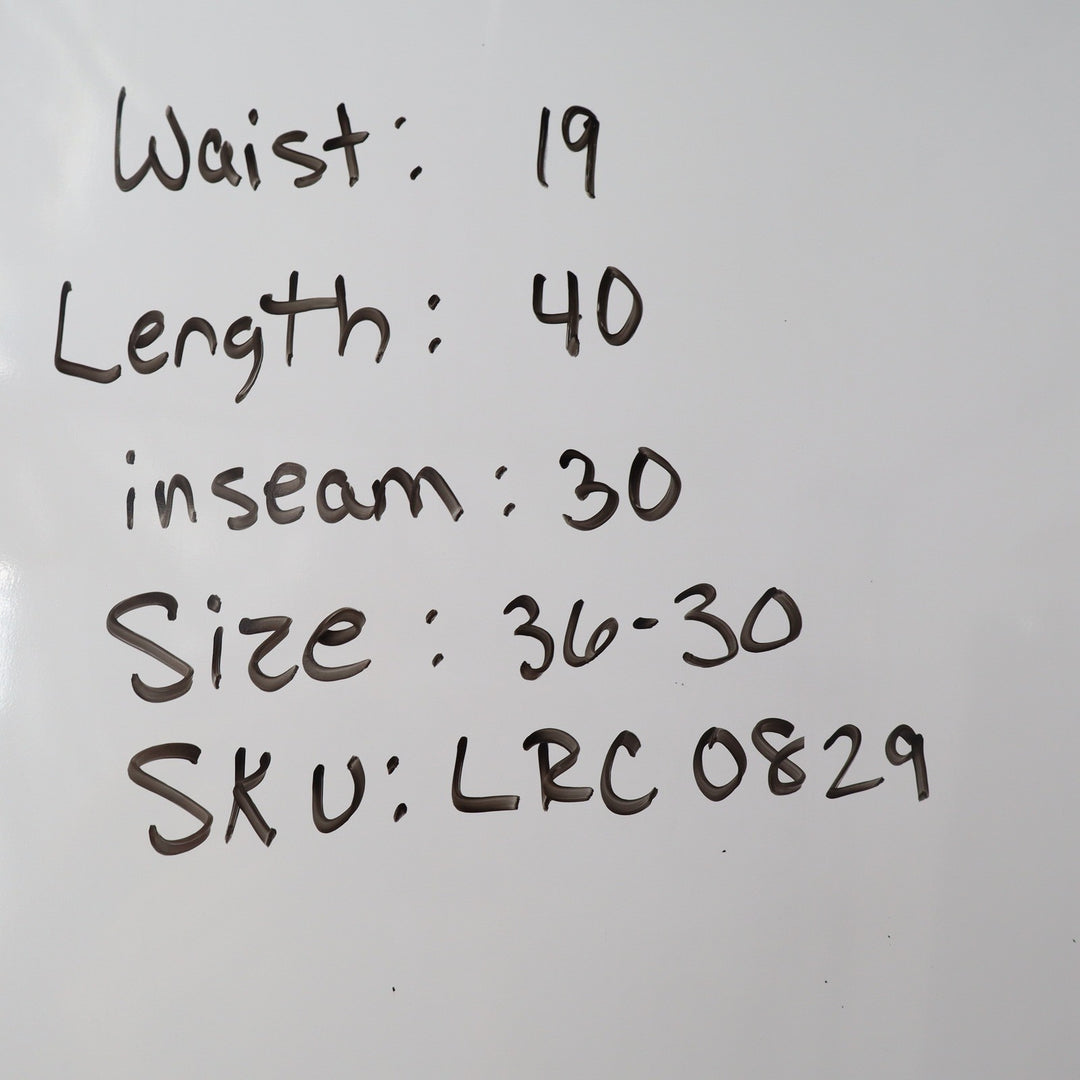 Waist: 19
Length: 40
inseam: 30
Size: 36-30
SKU: LRC 0829